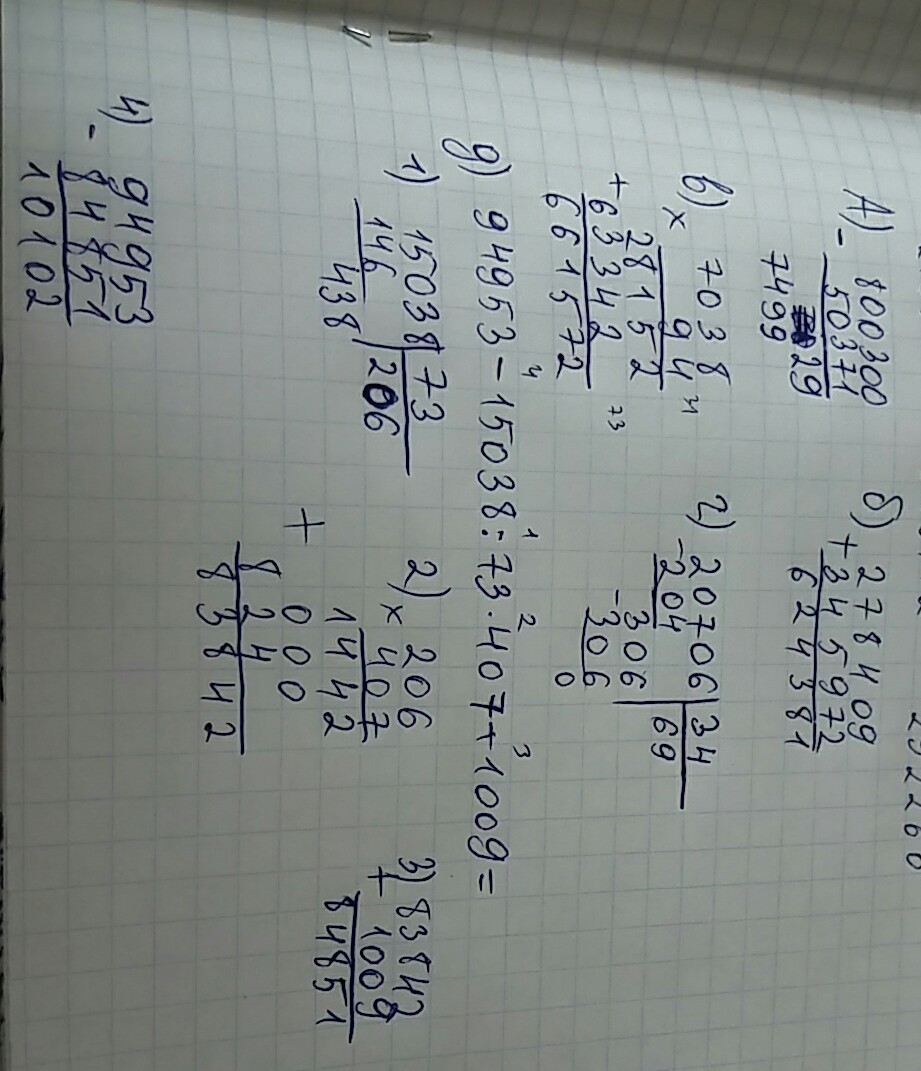 А) 800300
- 50371
7499 29
б) 278409
+ 345972
624381
в) 7038
× 94
28152
+ 63342
661572
г) 20706 | 34
- 204 | 69
306
- 306
0
д) 94953 - 15038 : 73 · 407 + 1009 =
4 1 2 3
1) 15038 | 73
146 | 206
438
2) 206
× 407
1442
+ 000
824
83842
3) 83842
+ 1009
84851
4) 94953
- 84851
10102